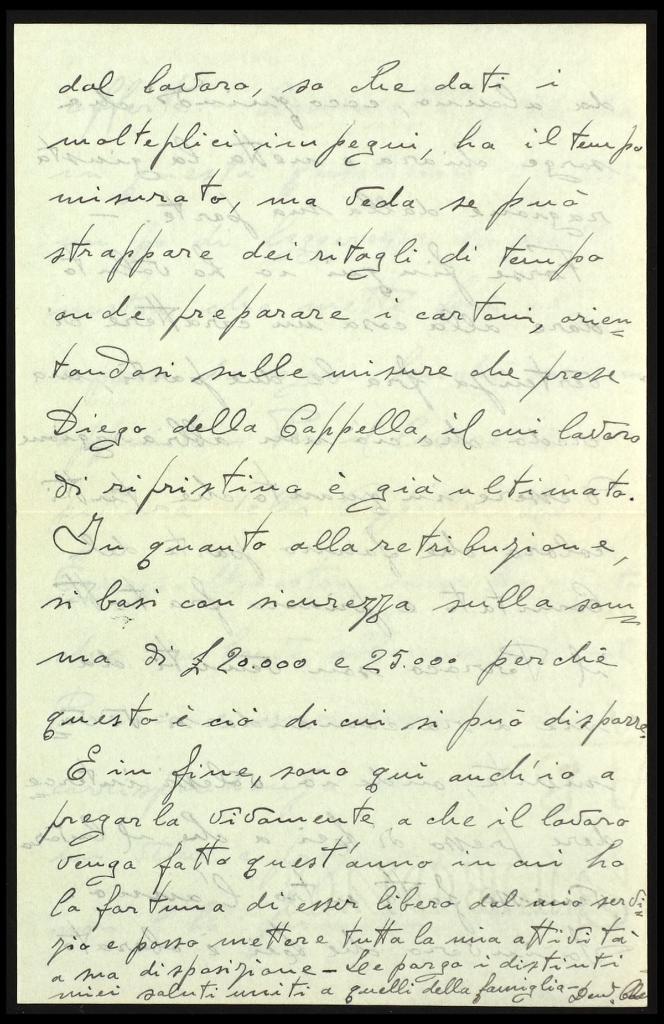 dal lavoro, so che dati i
molteplici impegni, ha il tempo
misurato, ma veda se può
strappare dei ritagli di tempo
onde preparare i cartoni, orien=
tandosi sulle misure che prese
Diego della Cappella, il cui lavoro
di ripristino è già ultimato.
In quanto alla retribuzione,
si basi con sicurezza sulla som=
ma di £ 20.000 e 25.000 perchè
questo è ciò di cui si può disporre.
E in fine, sono quì anch'io a
pregarla vivamente a che il lavoro
venga fatto quest'anno in cui ho
la fortuna di esser libero dal mio servi=
zio e posso mettere tutta la mia attività
a sua disposizione – Le porgo i distinti
miei saluti uniti a quelli della famiglia – Dev.